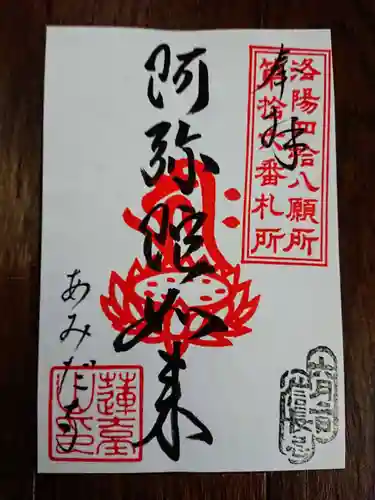 洛陽四拾八願所
第拾六番札所
奉拝
阿弥陀如来
あみだ寺
蓮臺